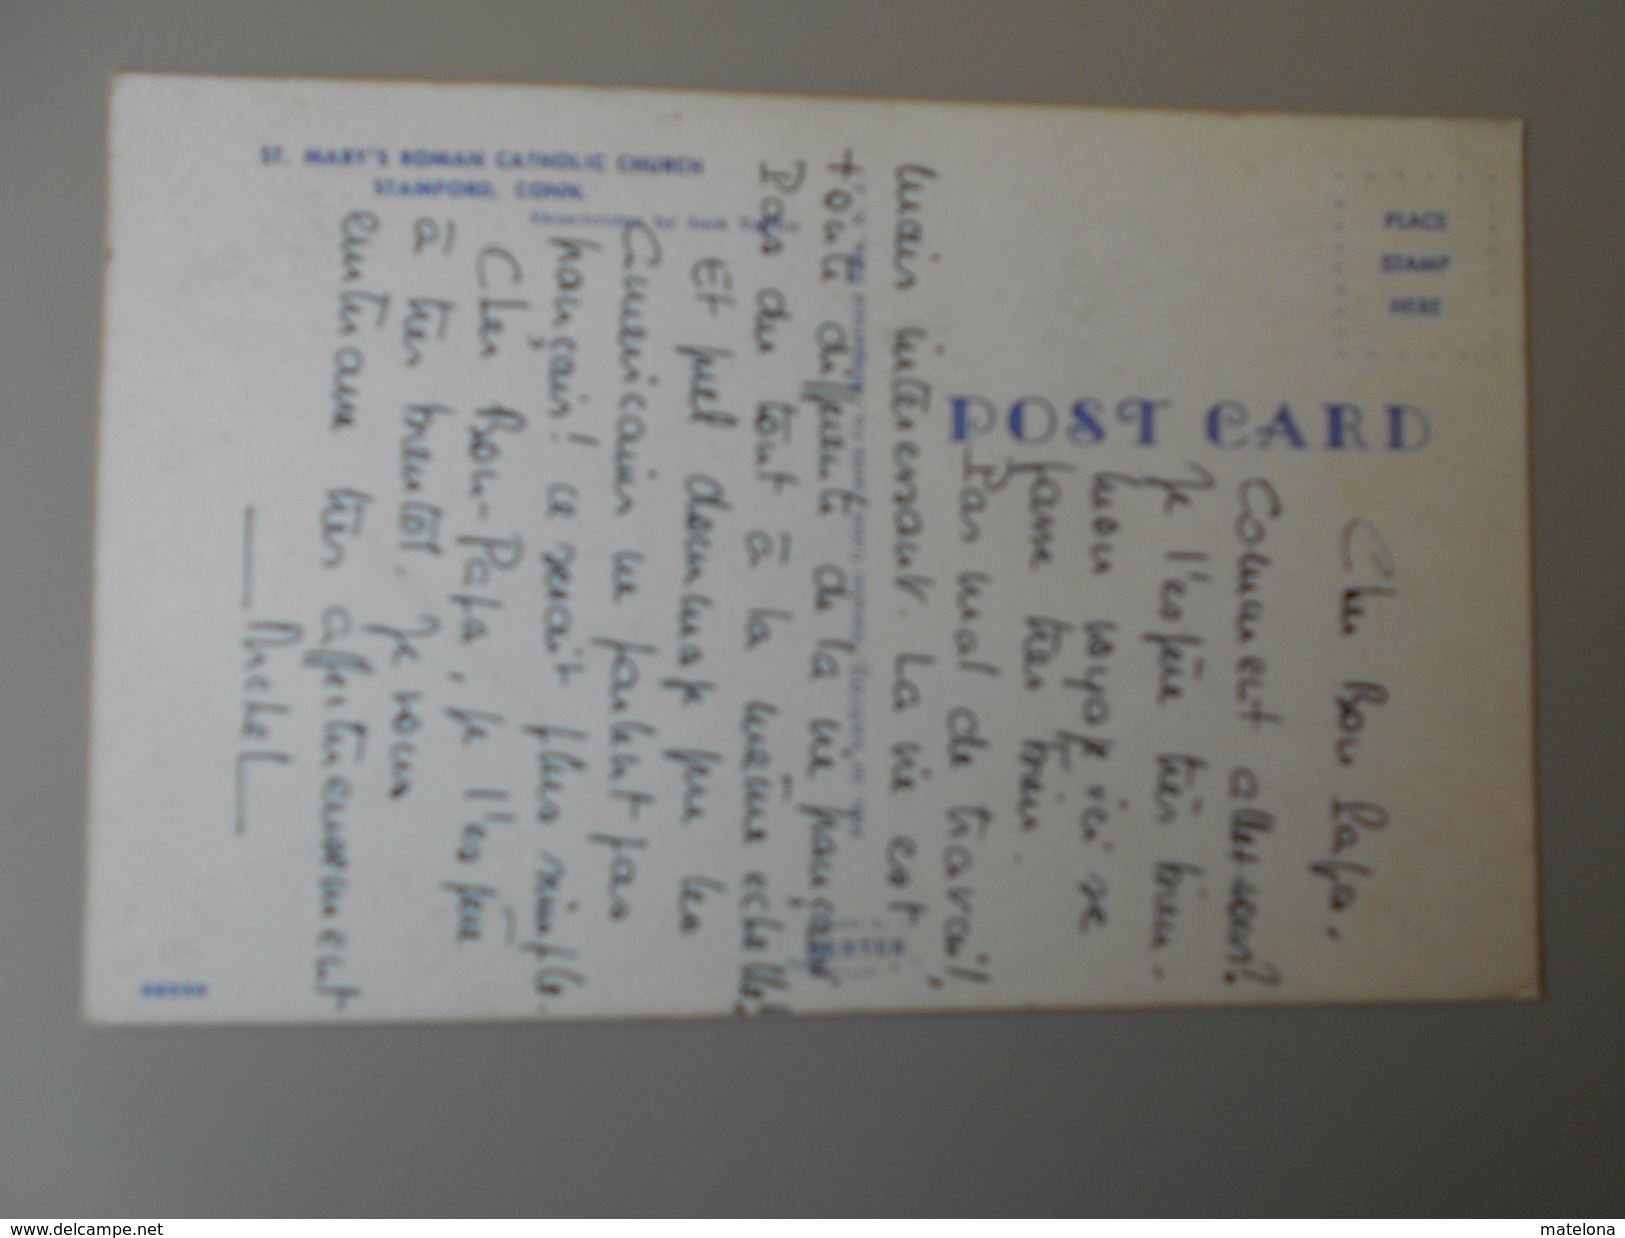 ST. MARY'S ROMAN CATHOLIC CHURCH
STAMFORD, CONN.
PLACE
STAMP
HERE
POST CARD
Cher Bon Papa,
Comment allez-vous?
Je l'espère très bien.
Mon voyage ici se
passe très bien.
Pas mal de travail,
mais intéressant. La vie est
toute différente de la vie française
Pas du tout à la même echelle!
Et quel dommage que les
Américains ne parlent pas
français! ce serait plus simple.
Cher Bon-Papa, je l'espère
à très bientôt. Je vous
embrasse très affectueusement
Michel
www.delcampe.net
matelona